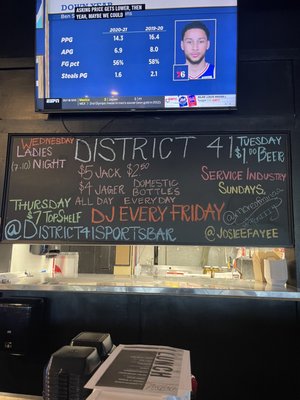 DOWN YEAR
ASKING PRICE GETS LOWER, THEN
YEAH, MAYBE WE COULD
Ben S
2020-21 2019-20
PPG 14.3 16.4
APG 6.9 8.0
FG pct 56% 58%
Steals PG 1.6 2.1
76
DISTRICT 41
WEDNESDAY
LADIES
(7-10) NIGHT
$5 JACK
$4 JAGER
ALL DAY
$2.50
DOMESTIC
BOTTLES
EVERYDAY
TUESDAY
$1.00 BEER
SERVICE INDUSTRY
SUNDAYS
THURSDAY
$7 TOP SHELF
DJ EVERY FRIDAY
@DISTRICT41SPORTSBAR
@JOSIEEFAYEE
LUNCH